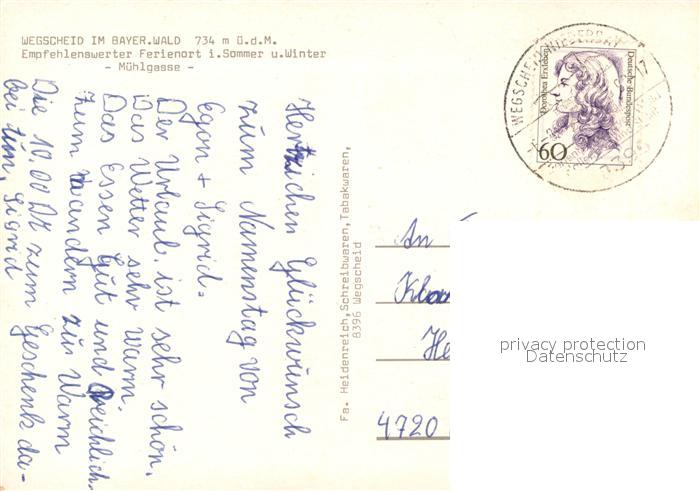 WEGSCHEID IM BAYER.WALD 734 m ü.d.M.
Empfehlenswerter Ferienort i.Sommer u.Winter
- Mühlgasse -
Hertzlichen Glückwünsch
zum Namenstag von
Egon + Sigrid.
Der Urlaub ist sehr schön,
Das Wetter sehr warm.
Das Essen gut und Reichlich.
zum wandern zu Warm
Die 10.00 DM zum Geschenk da-
bei tun, Sigrid
Fa. Heidenreich, Schreibwaren, Tabakwaren,
8396 Wegscheid
WEGSCHEID
Dorothea Erxleben
Deutsche Bundespost
60
An
4720
privacy protection
Datenschutz